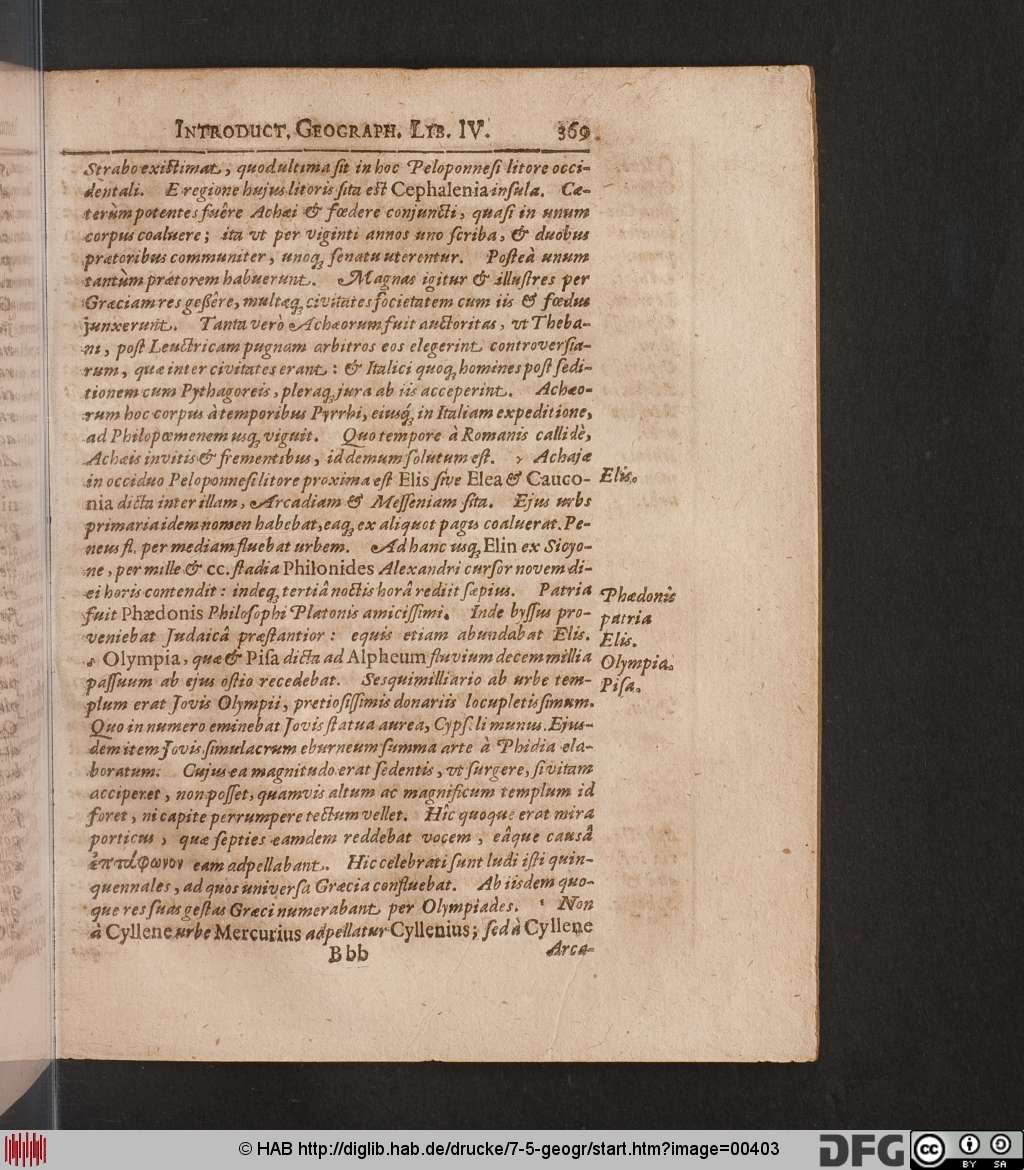 INTRODUCT. GEOGRAPH. LIB. IV. 369
Strabo existimat, quod ultima sit in hoc Peloponnesi litore occi-
dentali. E regione hujus litoris sita est Cephalenia insula. Cæ-
terùm potentes fuêre Achæi & fœdere conjuncti, quasi in unum
corpus coaluere; ita vt per viginti annos uno scriba, & duobus
prætoribus communiter, unoq; senatu uterentur. Posteà unum
tantùm prætorem habuerunt. Magnas igitur & illustres per
Græciam res geßêre, multæq; civitates societatem cum iis & fœdus
junxerunt. Tanta verò Achæorum fuit auctoritas, vt Theba-
ni, post Leuctricam pugnam arbitros eos elegerint controversia-
rum, quæ inter civitates erant: & Italici quoq; homines post sedi-
tionem cum Pythagoreis, pleraq; jura ab iis acceperint. Achæo-
rum hoc corpus à temporibus Pyrrhi, eiusq́; in Italiam expeditione,
ad Philopœmenem usq; viguit. Quo tempore à Romanis callidè,
Achæis invitis & frementibus, id demum solutum est. Achajæ
in occiduo Peloponnesi litore proxima est Elis sive Elea & Cauco-
nia dicta inter illam, Arcadiam & Messeniam sita. Ejus urbs
primaria idem nomen habebat, eaq; ex aliquot pagis coaluerat. Pe-
neus fl. per mediam fluebat urbem. Ad hanc usq; Elin ex Sicyo-
ne, per mille & cc. stadia Philonides Alexandri cursor novem di-
ei horis contendit: indeq; tertiâ noctis horâ rediit sæpius. Patria
fuit Phædonis Philosophi Platonis amicissimi. Inde byssus pro-
veniebat Judaicâ præstantior: equis etiam abundabat Elis.
Olympia, quæ & Pisa dicta ad Alpheum fluvium decem millia
passuum ab ejus ostio recedebat. Sesquimilliario ab urbe tem-
plum erat Jovis Olympii, pretiosissimis donariis locupletissimum.
Quo in numero eminebat Jovis statua aurea, Cypseli munus. Ejus-
dem item Jovis simulacrum eburneum summa arte à Phidia ela-
boratum: Cujus ea magnitudo erat sedentis, vt surgere, si vitam
acciperet, non posset, quamvis altum ac magnificum templum id
foret, ni capite perrumpere tectum vellet. Hîc quoque erat mira
porticus, quæ septies eamdem reddebat vocem, eâque causâ
ἑπτάφωνον eam adpellabant. Hic celebrati sunt ludi isti quin-
quennales, ad quos universa Græcia confluebat. Ab iisdem quo-
que res suas gestas Græci numerabant per Olympiades. Non
à Cyllene urbe Mercurius adpellatur Cyllenius; sed à Cyllene
Bbb Arca-
Elis.
Phædonis
patria
Elis.
Olympia.
Pisa.
© HAB http://diglib.hab.de/drucke/7-5-geogr/start.htm?image=00403
DFG
cc BY SA